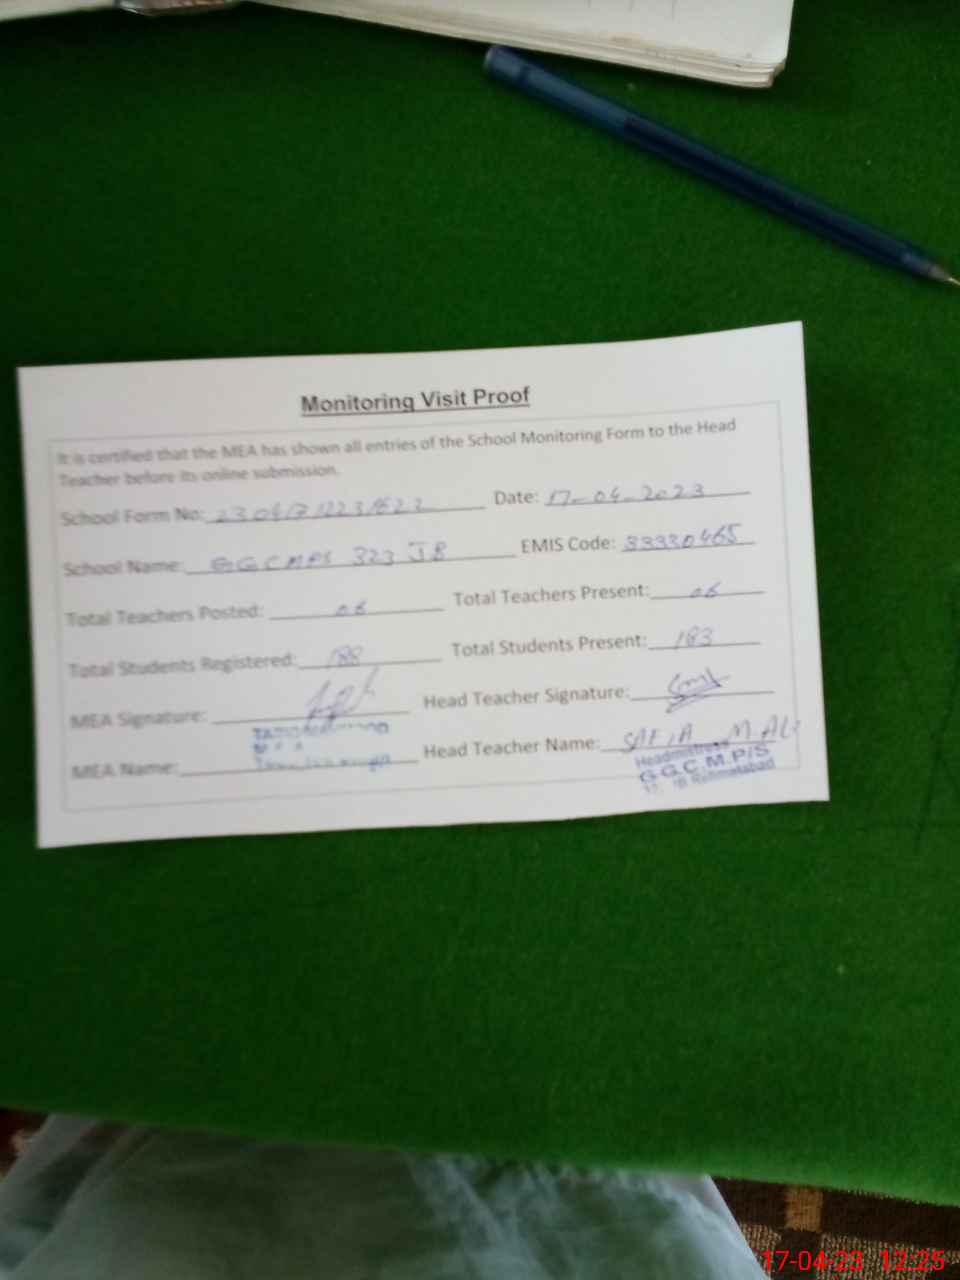 Monitoring Visit Proof
It is certified that the MEA has shown all entries of the School Monitoring Form to the Head
Teacher before its online submission.
School Form No: Date: 17-04-2023
School Name: GGCMPS 323 JB EMIS Code: 33330465
Total Teachers Posted: 06 Total Teachers Present: 06
Total Students Registered: 188 Total Students Present: 183
MEA Signature: Head Teacher Signature:
MEA Name: Head Teacher Name: SAFIA M.ALI
Headmistress
G.G.C.M.P/S
Rehmatabad
17-04-23 12:25